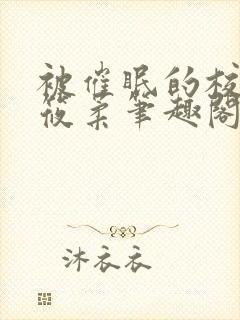 被催眠的校
筱柔笔趣阁
沐衣衣